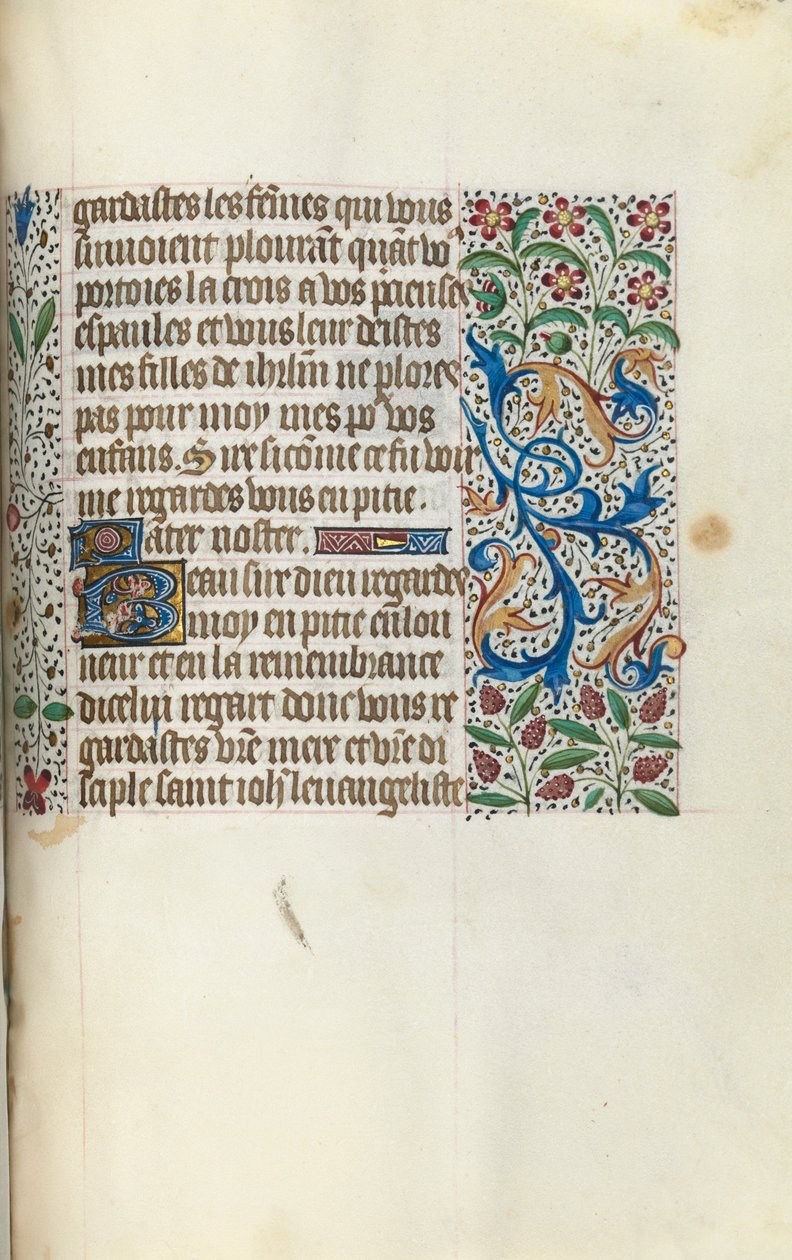 gardastes les fẽmes qui vous
suiuoient plourãt quãt vo⁹
portoies la crois a vos p̃cieuses
espaules et vous leur deistes
mes filles de ihrlm̃ ne plores
pas pour moy mes po᷑ vos
enfans. Sire si cõme ce fu voir
me regardes vous en pitie.
Pater noster.
Beau sire dieu regardes
moy en pitie en lon
neur et en la remembrance
dicelui regart donc vous re
gardastes vr̃e mere et vr̃e di
sciple saint ioh̃ leuangeliste